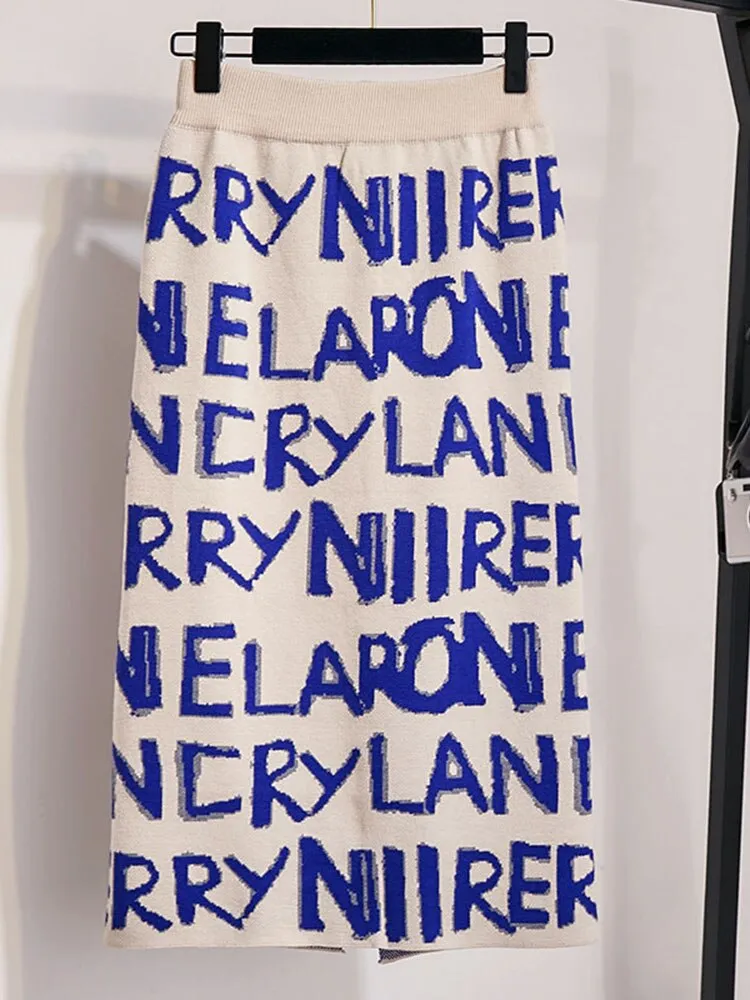 RRY NIIRER
N ELARON E
N CRY LAN
RRY NIIRER
N ELARON E
N CRY LAN
RRY NIIRER